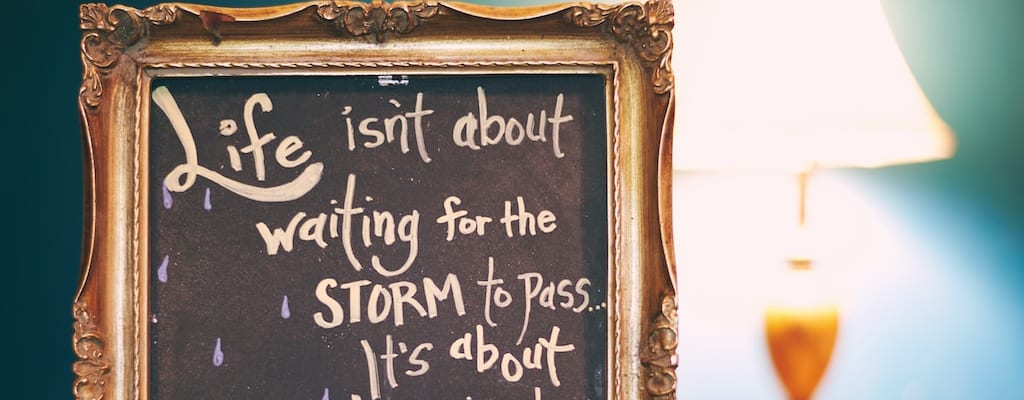 Life isn't about
waiting for the
STORM to pass..
It's about